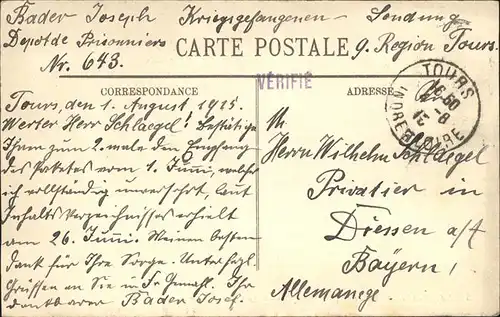 Bader Joseph Kriegsgefangenen – Sendung
Depot de Prisonniers
CARTE POSTALE 9. Region Tours.
Nr. 643.
VÉRIFIÉ
CORRESPONDANCE
Tours, den 1. August 1915.
Werter Herr Schlaegel! Bestätige
Ihnen zum 2. male den Empfang
des Paketes vom 1. Juni, welches
ich vollständig unversehrt, laut
Inhaltsverzeichnisses erhielt
am 26. Juni. Meinen besten
Dank für Ihre Sorge. Unterdessen
Grüssen an Sie u. Fr. Gemahl. Ihr
dankbarer Bader Josef.
ADRESSE
An
TOURS
16 50
1-8
15
INDRE ET LOIRE
Herrn Wilhelm Schlaegel
Privatier in
Diessen a/A
Bayern,
Allemange.